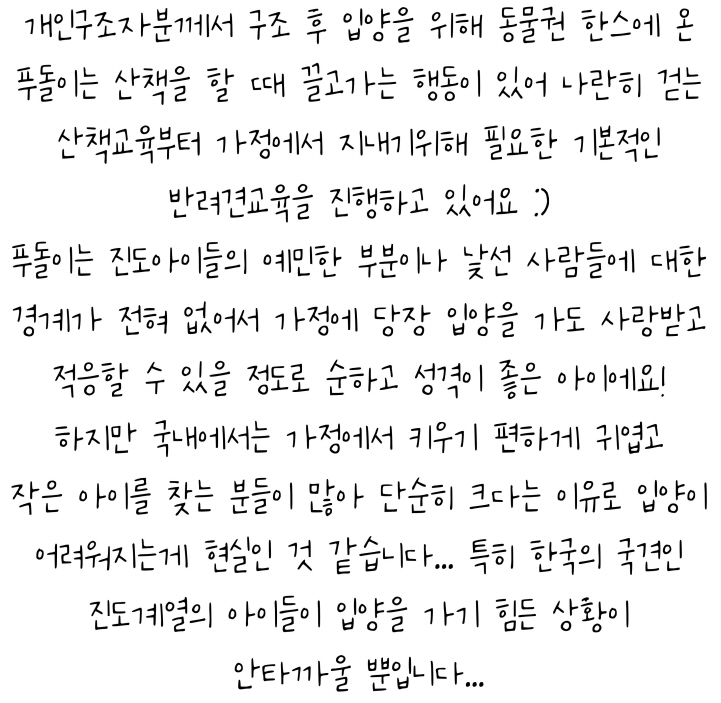 개인구조자분께서 구조 후 입양을 위해 동물권 한스에 온
푸돌이는 산책을 할 때 끌고가는 행동이 있어 나란히 걷는
산책교육부터 가정에서 지내기위해 필요한 기본적인
반려견교육을 진행하고 있어요 :)
푸돌이는 진도아이들의 예민한 부분이나 낯선 사람들에 대한
경계가 전혀 없어서 가정에 당장 입양을 가도 사랑받고
적응할 수 있을 정도로 순하고 성격이 좋은 아이에요!
하지만 국내에서는 가정에서 키우기 편하게 귀엽고
작은 아이를 찾는 분들이 많아 단순히 크다는 이유로 입양이
어려워지는게 현실인 것 같습니다... 특히 한국의 국견인
진도계열의 아이들이 입양을 가기 힘든 상황이
안타까울 뿐입니다...